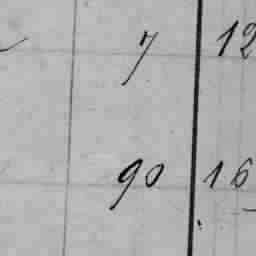 7 12
90 16